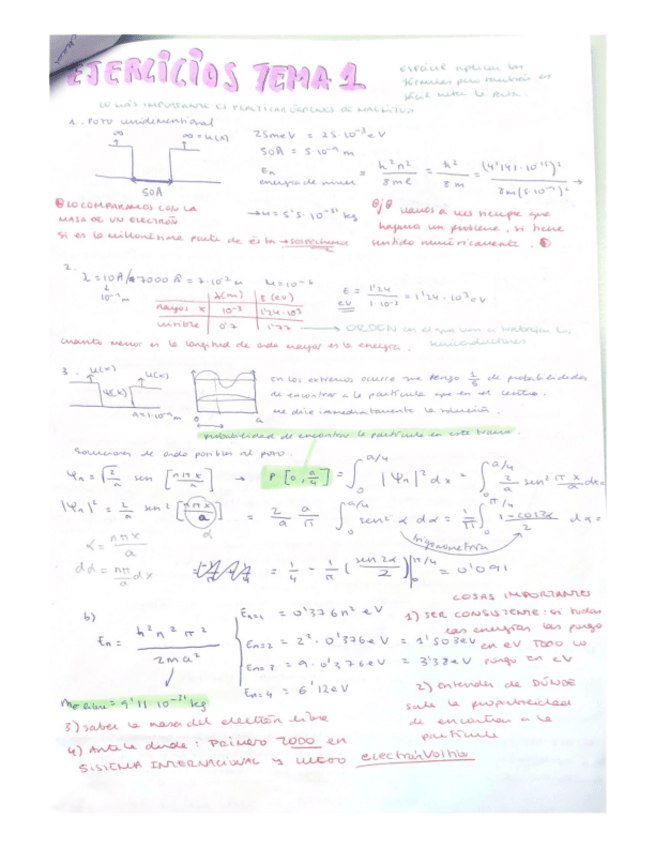 EJERCICIOS TEMA 1
es fácil aplicar las
fórmulas pero también es
fácil meter la pata.
LO MÁS IMPORTANTE ES PRACTICAR ÓRDENES DE MAGNITUD
1. Pozo unidimensional
∞ ∞ = U(x)
50Å
25meV = 25·10⁻³ eV
50Å = 5·10⁻⁹ m
En
energía de
= h²n² / 8ml = h² / 8m =
→ m = 5'5·10⁻³¹ kg
LO COMPARAMOS CON LA
MASA DE UN ELECTRÓN
Si es la millonésima parte de ésta → sospechamos
Ojo vamos a ver siempre que
hagamos un problema, si tiene
sentido numéricamente.
2.
10⁻⁹ m
λ(m) E(eV)
rayos x 10⁻³ 1'24·10³
visible 0'7 1'77 → ORDEN en el que van a trabajar los
semiconductores
E = 1'24 / 1·10⁻³ = 1'24·10³ eV
eV
cuanto menor es la longitud de onda mayor es la energía.
3. U(x) U(x)
ψ(x)
0 a
en los extremos ocurre que tengo de probabilidades
de encontrar a la partícula que en el centro.
me dice inmediatamente la solución.
probabilidad de encontrar la partícula en este tramo.
soluciones de onda posibles al pozo.
ψn = √(2/a) sen [nπx/a] → P[0, a/4] = ∫₀^(a/4) |ψn|² dx = ∫₀^(a/4) 2/a sen² πx/a dx =
|ψn|² = 2/a sen² [nπx/a] = 2/a a/π ∫₀^(π/4) sen² α dα = 1/π ∫₀^(π/4) 1-cos2α / 2 dα =
α
trigonometría
α = nπx/a
dα = nπ/a dx
= 1/4 - 1/π (sen 2α / 2) |₀^(π/4) = 0'091
b)
En = ħ²n²π² / 2ma²
En=1 = 0'376n² eV
En=2 = 2²·0'376eV = 1'503eV
En=3 = 9·0'376eV = 3'38eV
En=4 = 6'12eV
me libre = 9'11·10⁻³¹ kg
COSAS IMPORTANTES
1) SER CONSISTENTE: si todas
las energías las pongo
en eV TODO lo
pongo en eV
2) entender de DÓNDE
sale la probabilidad
de encontrar a la
partícula
3) saber la masa del electrón libre
4) Ante la duda: PRIMERO TODO en
SISTEMA INTERNACIONAL y luego electrónVoltio